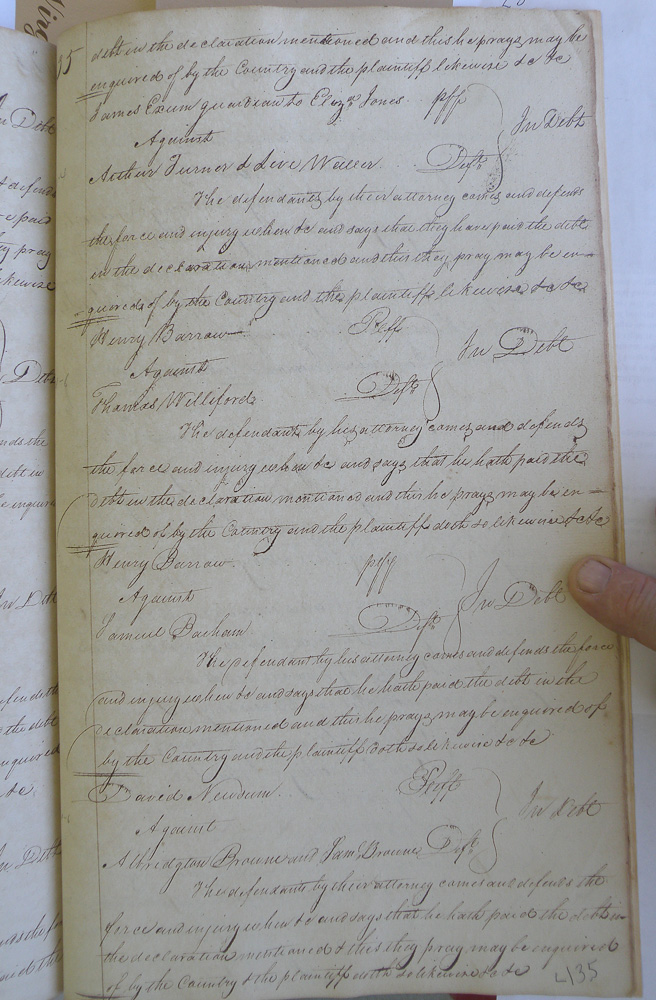 35
debt in the declaration mentioned and this he prays may be
enquired of by the Country and the plaintiff likewise &c &c
James Exum guardian to Eliza Jones plff
In Debt
Against
Arthur Turner & Live Waller Defts
The defendants by their attorney comes and defends
the force and injury when &c and says that they have paid the debt
in the declaration mentioned and this they pray may be en-
quired of by the Country and the plaintiff likewise &c &c
Henry Barrow Plff
In Debt
Against
Thomas Williford Deft
The defendant by his attorney comes and defends
the force and injury when &c and says that he hath paid the
debt in the declaration mentioned and this he prays may be en-
quired of by the Country and the plaintiff doth so likewise &c &c
Henry Barrow plff
In Debt
Against
Samuel Basham Deft
The defendant by his attorney comes and defends the force
and injury when &c and says that he hath paid the debt in the
declaration mentioned and this he prays may be enquired of
by the Country and the plaintiff doth so likewise &c &c
David Newsum Plff
In debt
Against
Albridgton Browne and Jams Browne Defts
The defendants by their attorney comes and defends the
force and injury when &c and says that he hath paid the debt in
the declaration mentioned & this they pray may be enquired
of by the Country & the plaintiff doth so likewise &c &c
135